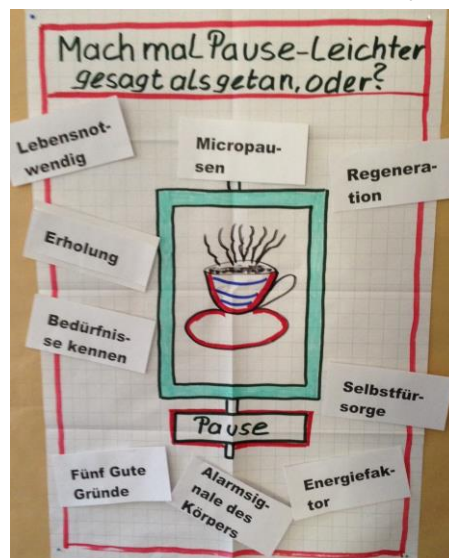 Mach mal Pause-Leichter
gesagt als getan, oder?
Lebensnot-
wendig
Micropau-
sen
Regenera-
tion
Erholung
Bedürfnis-
se kennen
Selbstfür-
sorge
Pause
Fünf Gute
Gründe
Alarmsig-
nale des
Körpers
Energiefak-
tor